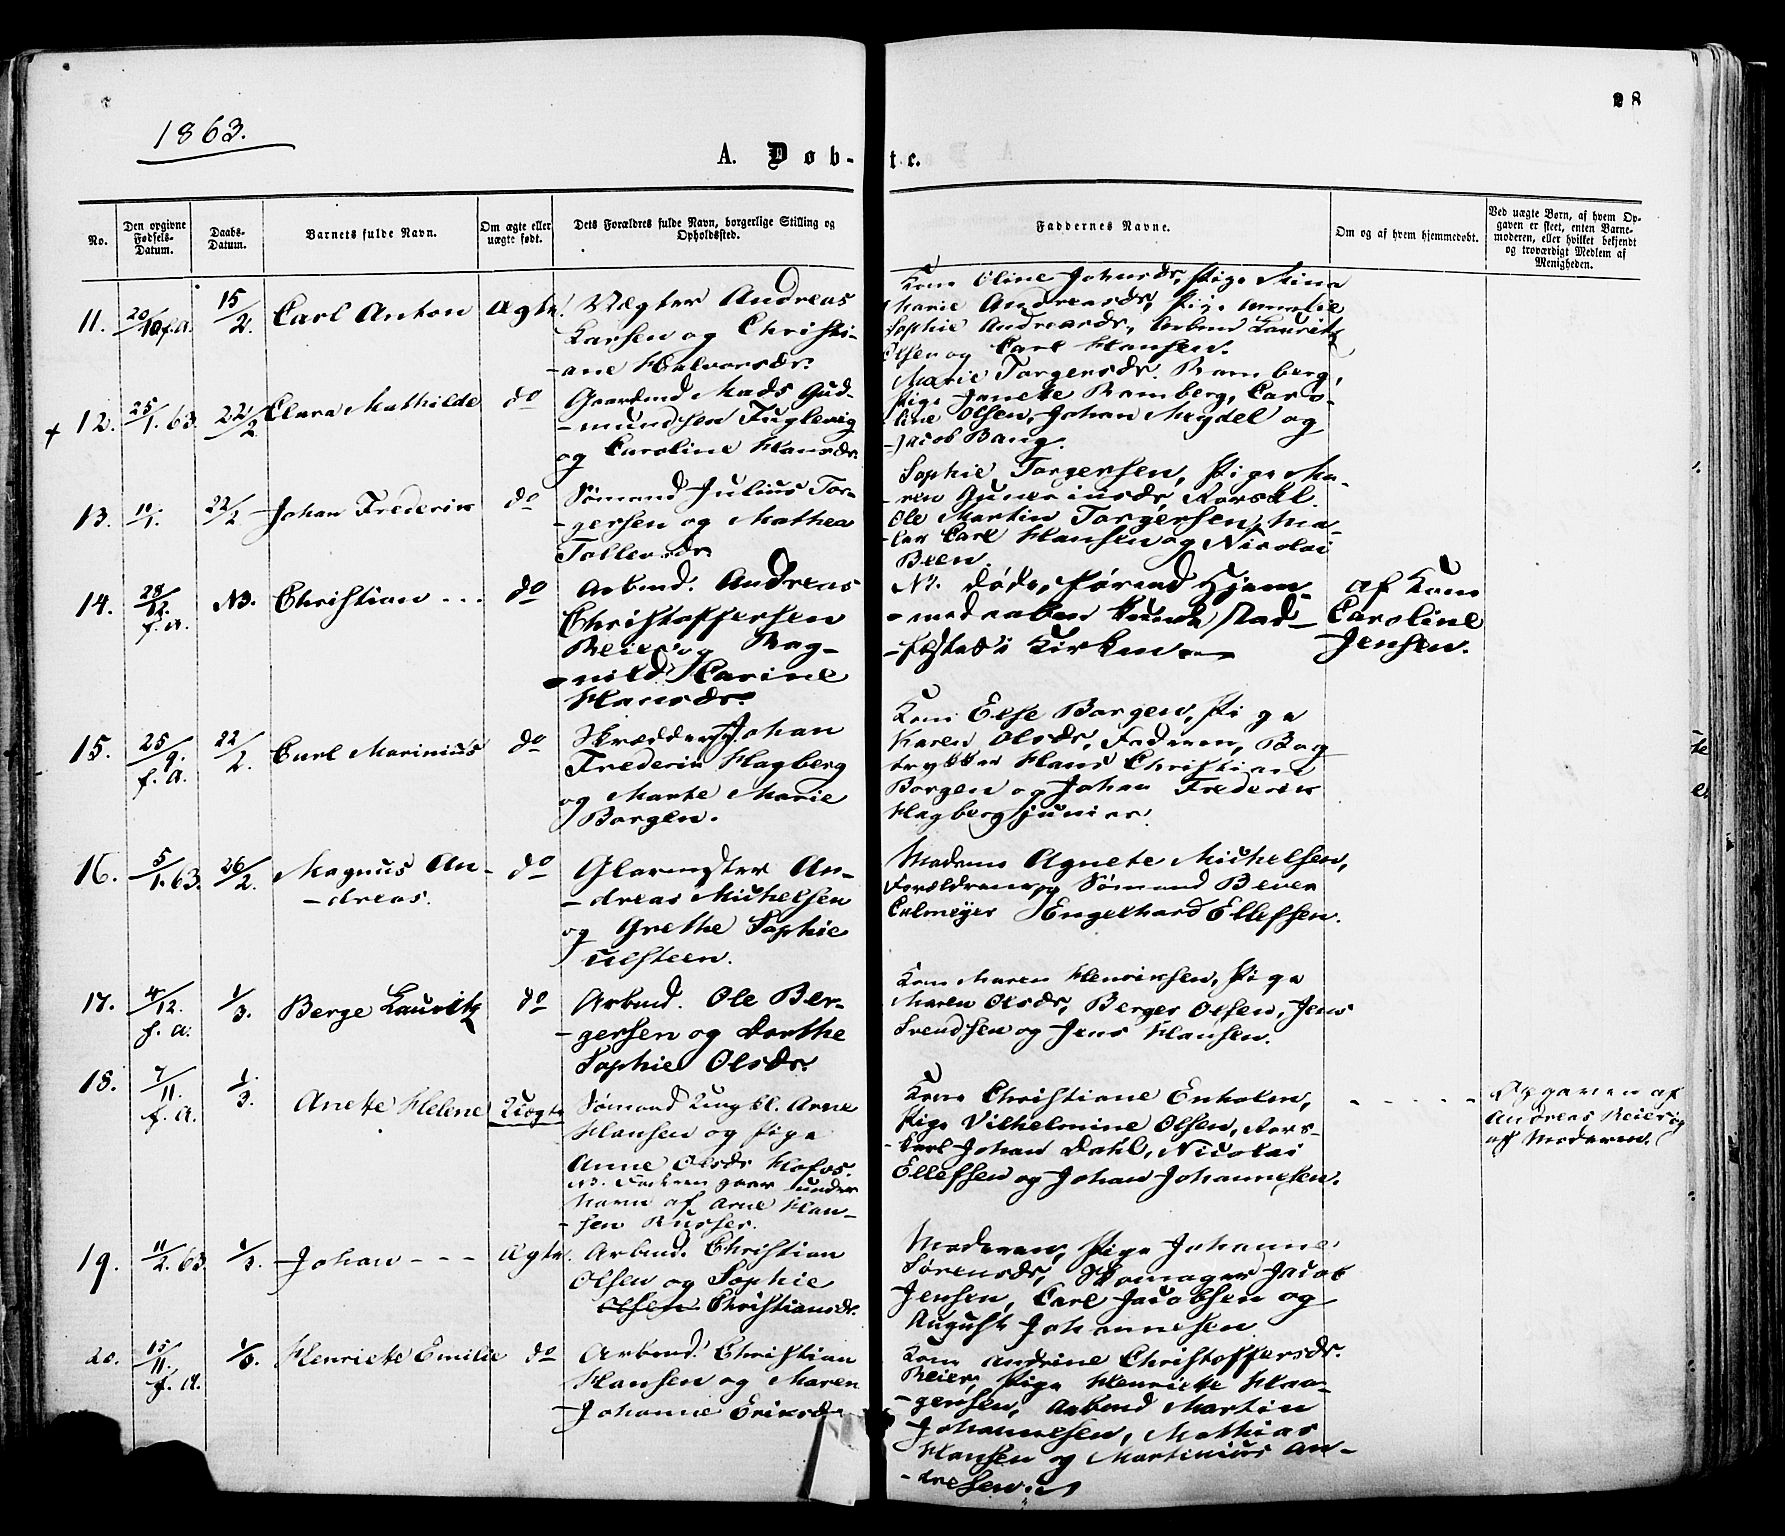 98
1863.
A. Døb-te.
No.
Den opgivne Fødsels-Datum.
Daabs-Datum.
Barnets fulde Navn.
Om ægte eller uægte født.
Dets Forældres fulde Navn, borgerlige Stilling og Opholdssted.
Faddernes Navne.
Om og af hvem hjemmedøbt.
Ved uægte Børn, af hvem Opgaven er skeet, enten Barnemoderen, eller hvilket bekjendt og troværdigt Medlem af Menigheden.
11. 20/10 f.a. 15/2. Carl Anton Ægte.
Vægter Andreas
Larsen og Christi-
-ane Halvorsdr.
Kone Oline Johnsdr, Pige Mina
Marie Andreasdr, Pige Amalie
Sophie Andreasdr, Arbmd Lauritz
Olsen og Carl Hansen.
+ 12. 25/1. 63. 22/2 Clara Mathilde do
Gaardmd Mads Gud-
-mundsen Fuglevig
og Caroline Hansdr.
Marie Torgersdr. Ramberg,
Pige Janette Ramberg, Caro-
-line Olsen, Johan Mejdel og
Jacob Bang.
13. 11/1. 22/2 Johan Frederik do
Sømand Julius Tor-
-gersen og Mathea
Tollevsdr
Sophie Torgersen, Pige Ma-
-ren Gunerinsdr, Karskl.
Ole Martin Torgersen, Ma-
-ler Carl Hansen og Nicolai
Been.
14. 28/12. f.a. NB. Christian - - - do
Arbmd. Andreas
Christoffersen
Reier og Rag-
-nild Karine
Hansdr.
NB. døde, førend Hjem-
-medaaben kunde stad-
-fæstes i Kirken.
af Kone
Caroline
Jensen.
15. 25/9. f.a. 22/2. Carl Marinius do
Skrædder Johan
Frederik Hagberg
og Marte Marie
Borgen.
Kone Else Borgen, Pige
Karen Olsdr, Faderen, Bog
trykker Hans Christian
Borgen og Johan Frederik
Hagberg junior.
16. 5/1. 63. 26/2. Magnus An-
-dreas. do
Glarmester An-
-dreas Michelsen
og Grethe Sophie
Ulsteen.
Madame Agnete Michelsen,
Forældrene, og Sømand Bever
Culmeyer Engelhard Ellefsen.
17. 4/12. f.a. 1/3. Berge Lauritz do
Arbmd. Ole Ber-
-gersen og Dorthe
Sophie Olsdr.
Kone Maren Henriksen, Pige
Maren Olsdr, Berger Olsen, Jens
Svendsen og Jens Hansen.
18. 7/11. f.a. 1/3. Anette Helene Uægte
Sømand Ungkl. Arne
Hansen og Pige
Anne Olsdr Hofos.
NB. Faderen gaar under
Navn af Arne Han-
-sen Russer.
Kone Christiane Enholm,
Pige Vilhelmine Olsen, Kars-
-karl Johan Dahl, Nicolai
Ellefsen og Johan Johannesen.
- - - - -
Opgaven af
Andreas Reier og
af Moderen.
19. 11/2. 63. 1/3. Johan - - - Ægte.
Arbmd. Christian
Olsen og Sophie
Olsen Christiansdr.
Moderen, Pige Johanne
Sørensdr, Skomager Jacob
Jensen, Carl Jacobsen og
August Johannesen
20. 15/11. f.a. 1/3. Henriette Emilie do
Arbmd. Christian
Hansen og Maren
Johanne Eriksdr
Kone Andrine Christoffersdr.
Reier, Pige Henriette Haa-
-gensen, Arbmd Martin
Johannesen, Mathias
Hansen og Martinius An-
-dresen.